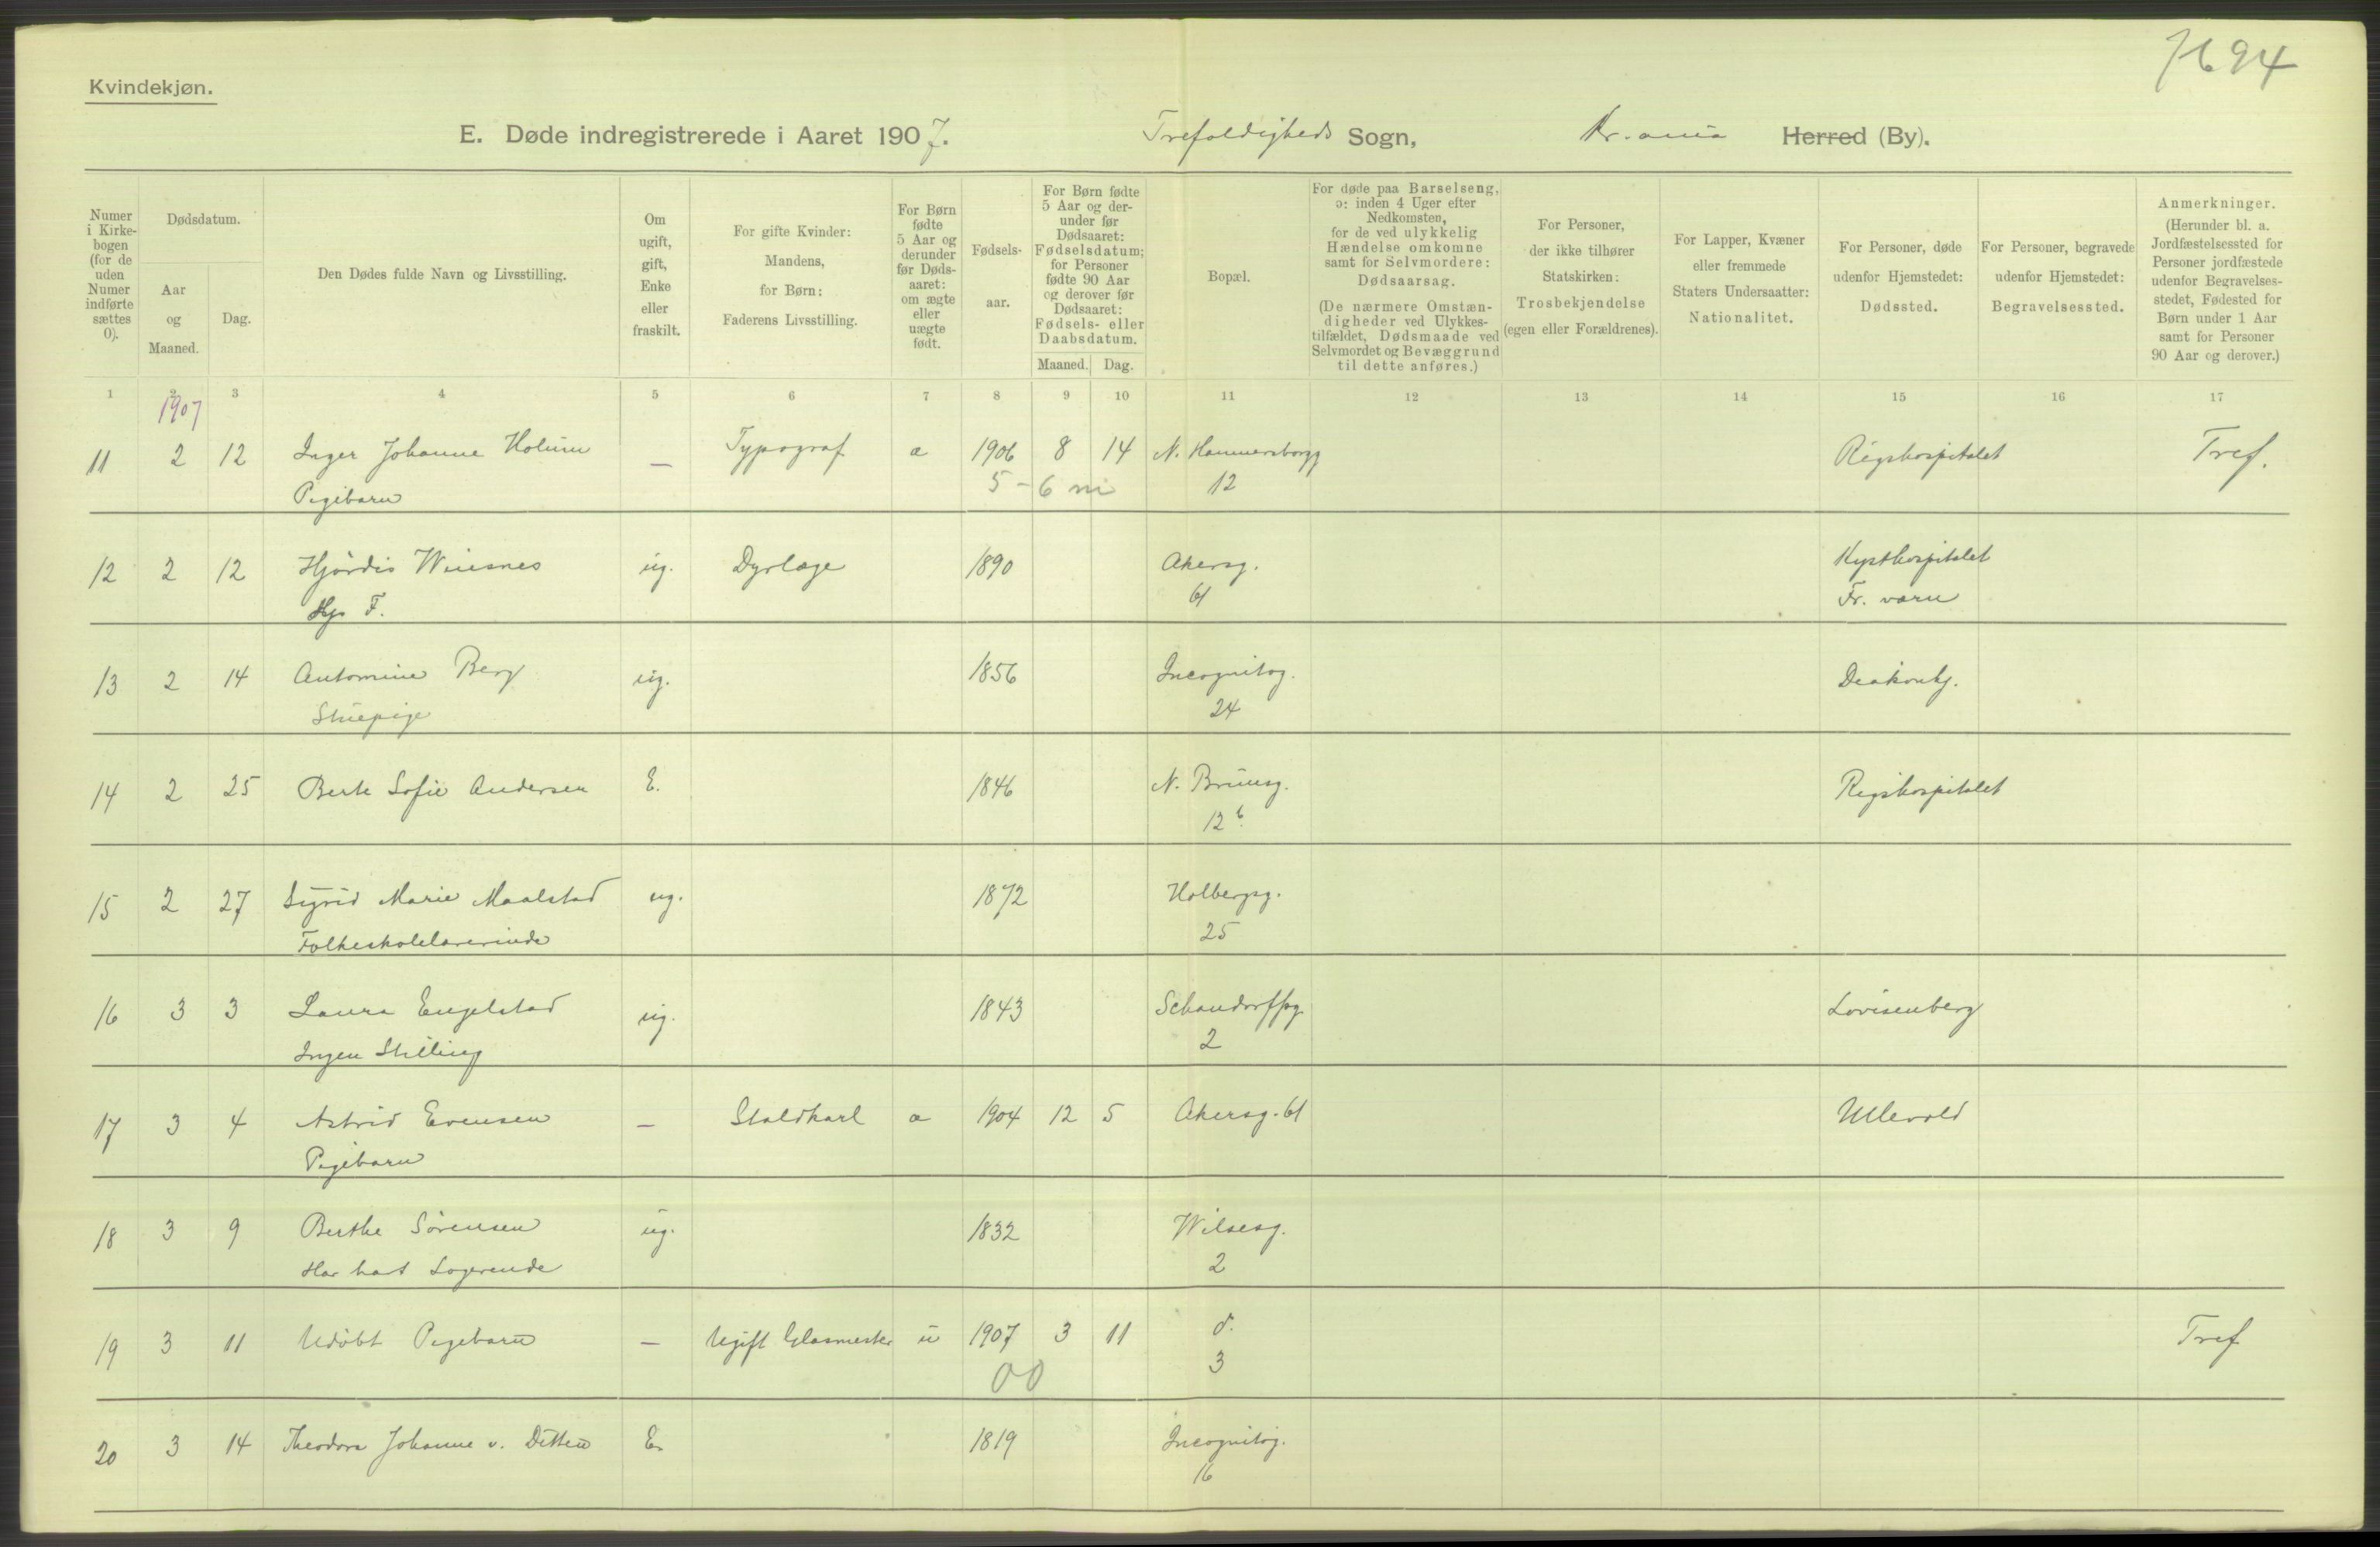 7694
Kvindekjøn.
E. Døde indregistrerede i Aaret 1907. Trefoldigheds Sogn, Kr.ania Herred (By).
Numer i Kirke-bogen (for de uden Numer indførte sættes 0).
Dødsdatum.
Aar og Maaned.
Dag.
Den Dødes fulde Navn og Livsstilling.
Om ugift, gift, Enke eller fraskilt.
For gifte Kvinder: Mandens, for Børn: Faderens Livsstilling.
For Børn fødte 5 Aar og derunder før Døds-aaret: om ægte eller uægte født.
Fødsels-aar.
For Børn fødte 5 Aar og der-under før Dødsaaret: Fødselsdatum; for Personer fødte 90 Aar og derover før Dødsaaret: Fødsels- eller Daabsdatum.
Maaned. Dag.
Bopæl.
For døde paa Barselseng, ɔ: inden 4 Uger efter Nedkomsten, for de ved ulykkelig Hændelse omkomne samt for Selvmordere: Dødsaarsag.
(De nærmere Omstæn-digheder ved Ulykkes-tilfældet, Dødsmaade ved Selvmordet og Bevæggrund til dette anføres.)
For Personer, der ikke tilhører Statskirken: Trosbekjendelse (egen eller Forældrenes).
For Lapper, Kvæner eller fremmede Staters Undersaatter: Nationalitet.
For Personer, døde udenfor Hjemstedet: Dødssted.
For Personer, begravede udenfor Hjemstedet: Begravelsessted.
Anmerkninger. (Herunder bl. a. Jordfæstelsessted for Personer jordfæstede udenfor Begravelses-stedet, Fødested for Børn under 1 Aar samt for Personer 90 Aar og derover.)
1 2 3 4 5 6 7 8 9 10 11 12 13 14 15 16 17
1907
11 2 12 Inger Johanne Holum — Typograf a 1906 8 14 N. Hammersborgg Rigshospitalet Tref.
Pigebarn 5-6 m 12
12 2 12 Hjördis Wiesnes ug. Dyrlæge 1890 Akersg. Kysthospitalet
Hjs F. 61 Fr. værn
13 2 14 Antomine Berg ug. 1856 Incognitog. Diakonhj.
Stuepige 24
14 2 25 Berte Sofie Andersen E. 1846 N. Brunsg. Rigshospitalet
12 b.
15 2 27 Sigrid Marie Maalstad ug. 1872 Holbergsg.
Folkeskolelærerinde 25
16 3 3 Laura Engelstad ug. 1843 Schandorffsg. Lovisenberg
Ingen Stilling 2
17 3 4 Astrid Evensen — Staldkarl a 1904 12 5 Akersg. 61 Ullevold
Pigebarn
18 3 9 Berthe Sörensen ug. 1832 Wilsesg.
Har hat Logerende 2
19 3 11 Udöbt Pigebarn — Ugift Glasmester u 1907 3 11 d. Tref
00 3
20 3 14 Theodora Johanne v. Ditten E. 1819 Incognitog.
16